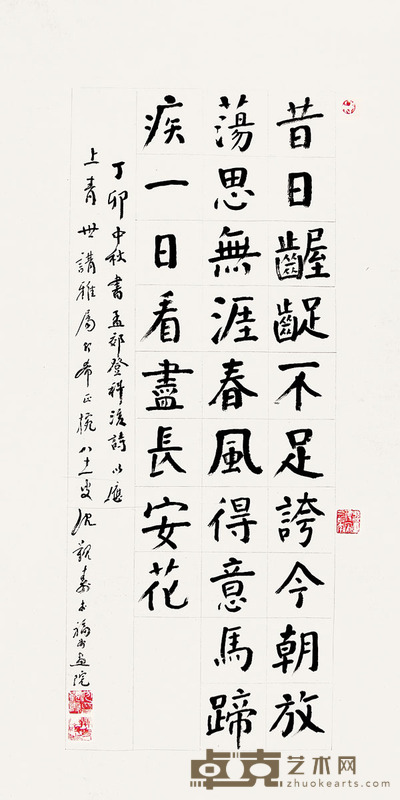 昔日齷齪不足誇今朝放
蕩思無涯春風得意馬蹄
疾一日看盡長安花
丁卯中秋書孟郊登科後詩以應
上青世講雅屬希正腕八十一叟沈覲壽于福州畫院
卓克艺术网
zhuokearts.com